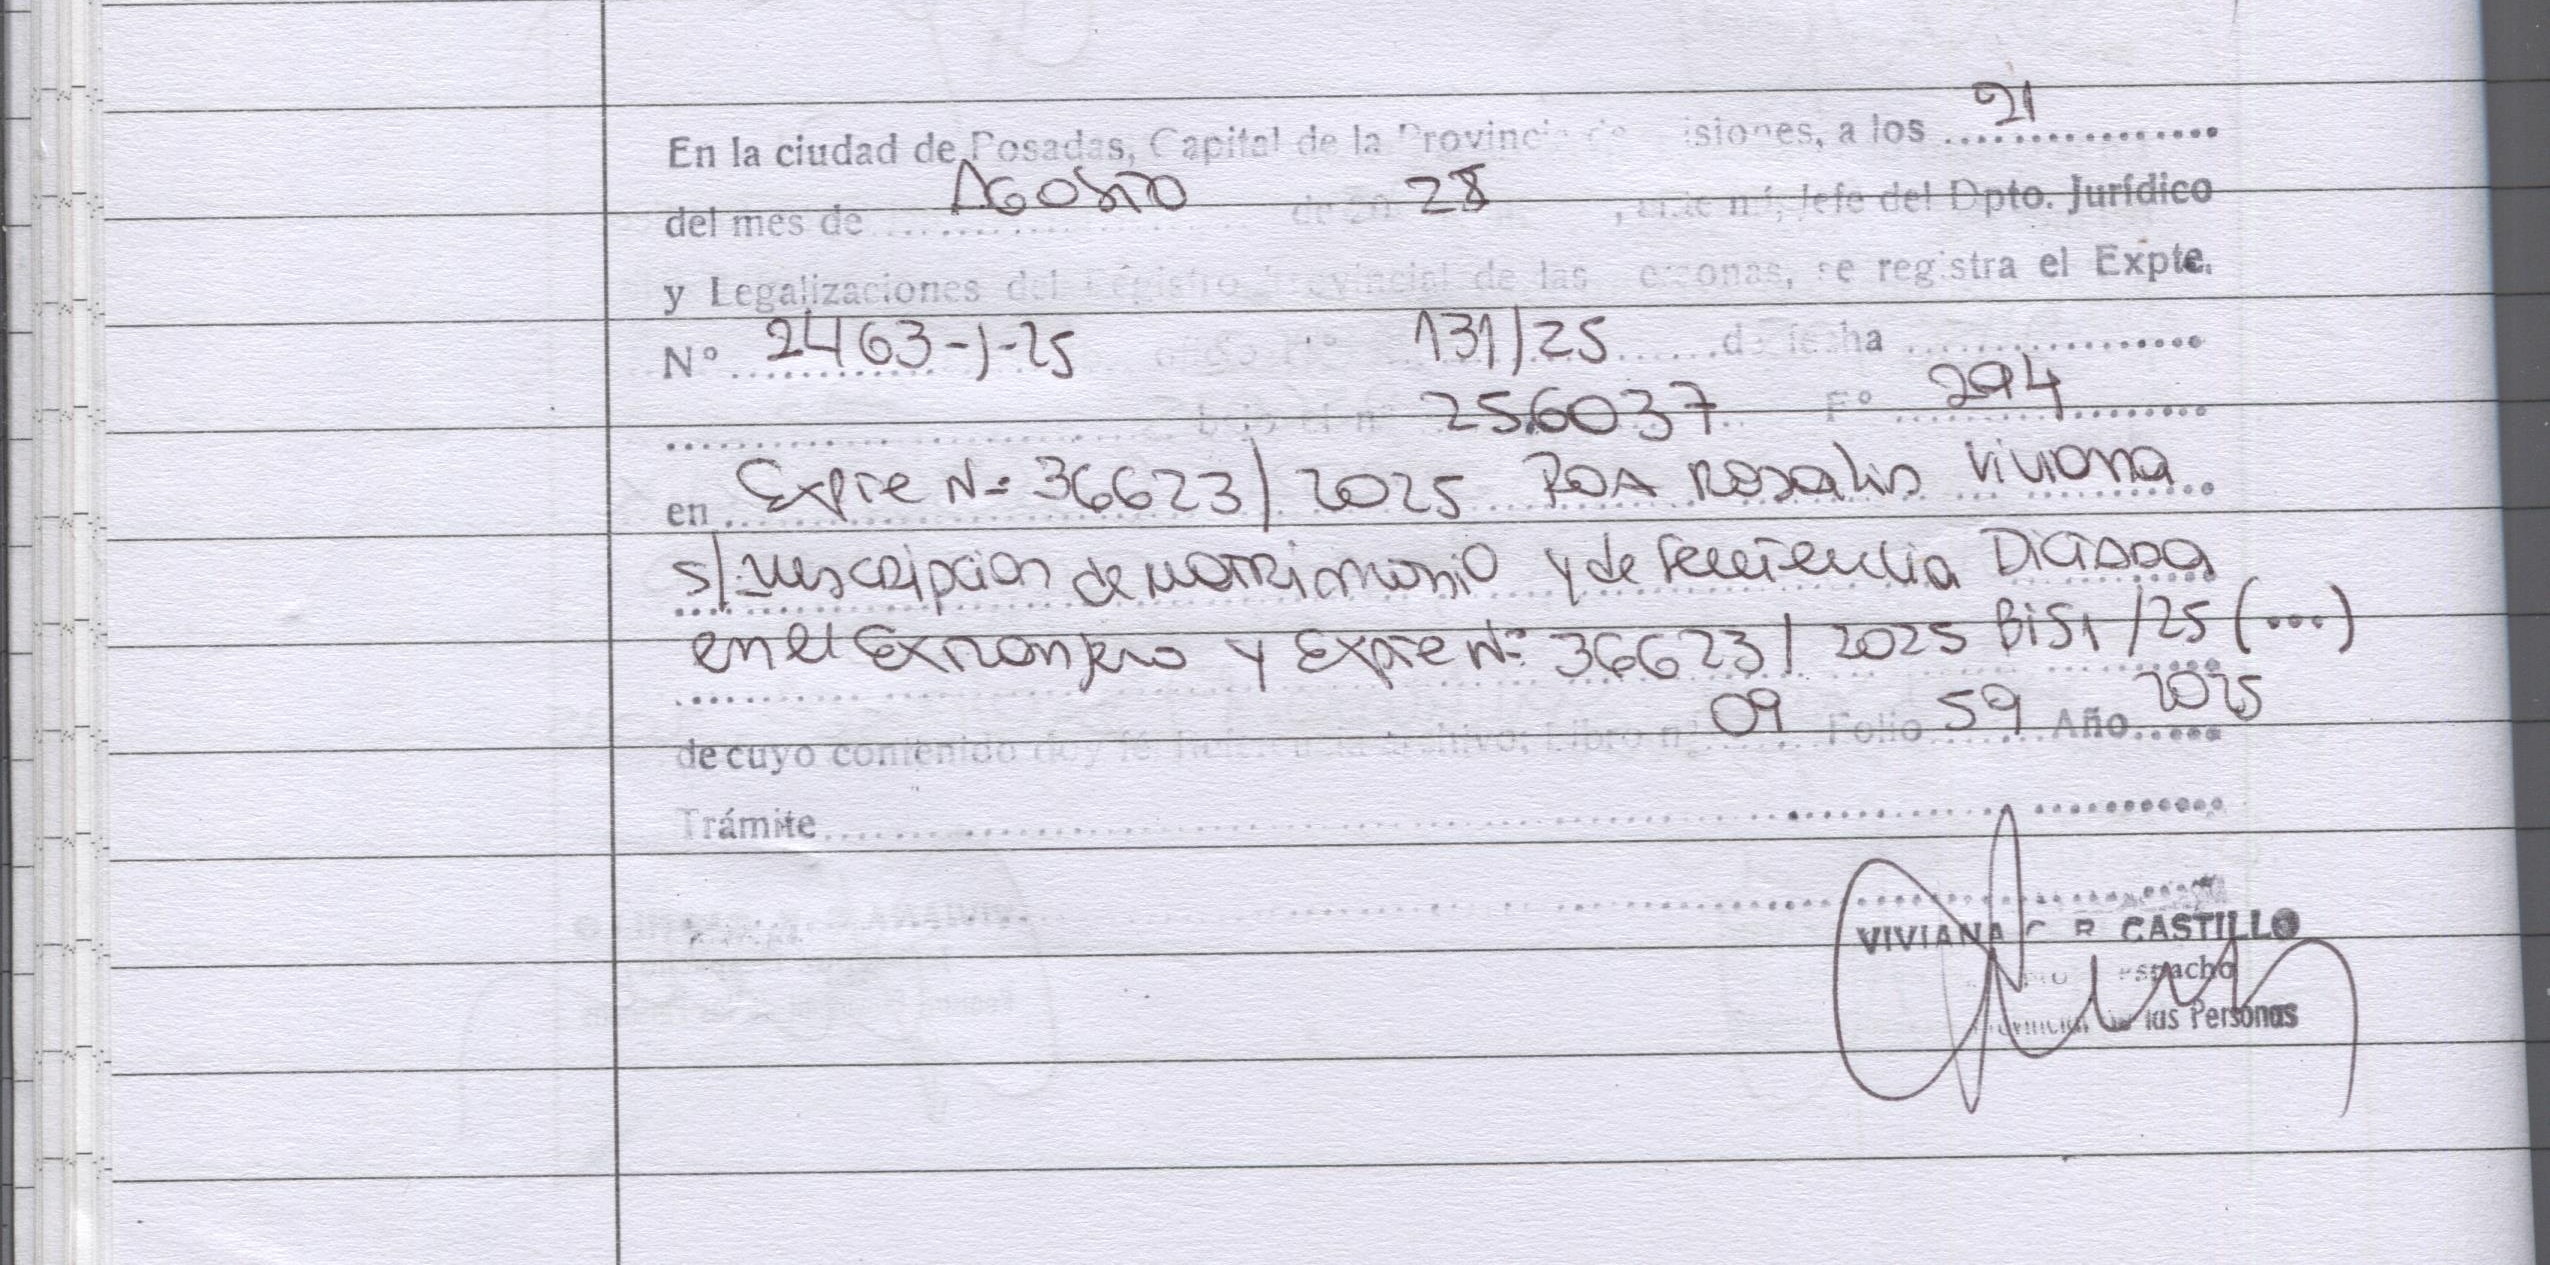 En la ciudad de Posadas, Capital de la Provincia de Misiones, a los 21
del mes de Agosto de 20 28, ante mí, Jefe del Dpto. Jurídico
y Legalizaciones del Registro Provincial de las Personas, se registra el Expte.
Nº 2463-J-25 131/25 de fecha
bajo el nº 256037 Fº 294
en Expte Nº 36623/2025 ROA Rosalis Viviana
s/ Inscripcion de matrimonio y de sentencia Dictada
en el Extranjero y Expte Nº 36623/2025 Bis1/25 (...)
de cuyo contenido doy fé. Archivo, Libro nº 09 Folio 59 Año 2025
Trámite
VIVIANA C R CASTILLO
Despacho
Provincial de las Personas